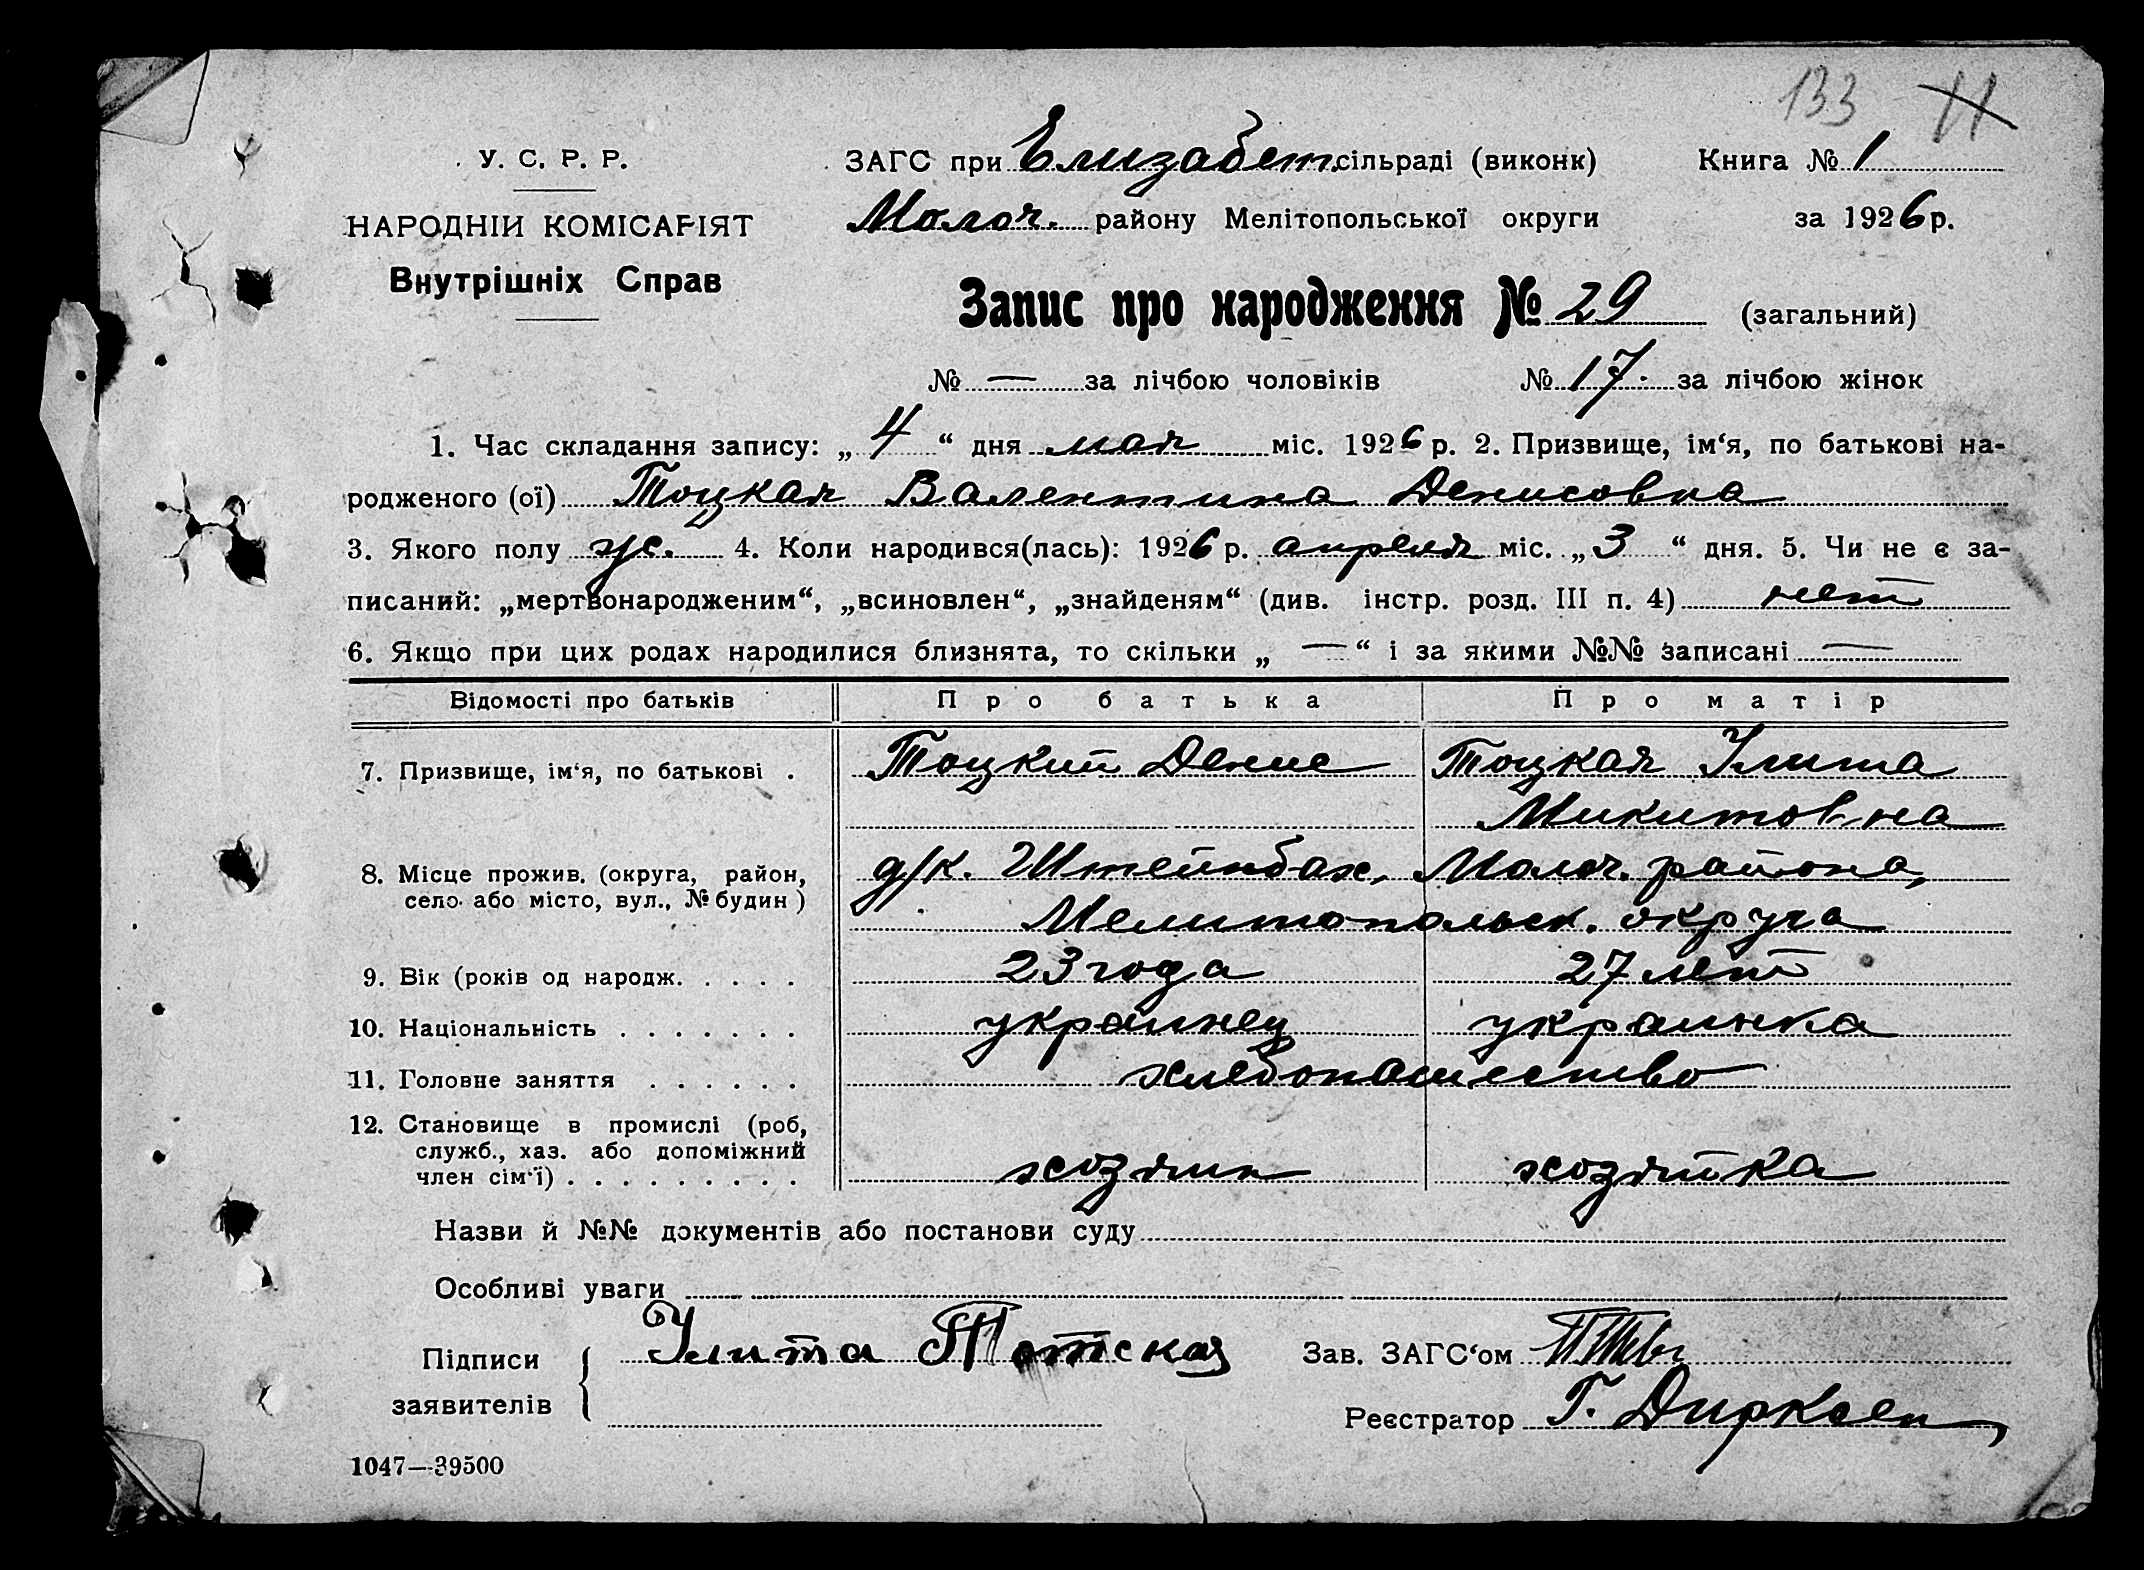 133 11
У. С. Р. Р.
ЗАГС при Елизабет. сільраді (виконк) Книга № 1
НАРОДНІЙ КОМІСАРІЯТ
Молоч. району Мелітопольської округи за 1926 р.
Внутрішніх Справ
Запис про народження № 29 (загальний)
№ — за лічбою чоловіків № 17. за лічбою жінок
1. Час складання запису: „ 4 “ дня мая міс. 1926 р. 2. Призвище, ім‘я, по батькові на-
родженого (ої) Тоцкая Валентина Денисовна
3. Якого полу ж. 4. Коли народився(лась): 1926 р. апреля міс. „ 3 “ дня. 5. Чи не є за-
писаний: „мертвонародженим“, „всиновлен“, „знайденям“ (див. інстр. розд. III п. 4) нет
6. Якщо при цих родах народилися близнята, то скільки „ — “ і за якими №№ записані —
Відомості про батьків Про батька Про матір
7. Призвище, ім‘я, по батькові . Тоцкий Денис Тоцкая Улита
Микитовна
8. Місце прожив. (округа, район, д/к. Штейнбах, Молоч. района,
село або місто, вул., № будин ) Мелитопольск. округа
9. Вік (років од народж. . . . . 23 года 27 лет
10. Національність . . . . . . . украинец украинка
11. Головне заняття . . . . . . хлебопашество
12. Становище в промислі (роб,
служб., хаз. або допоміжний
член сім‘ї) . . . . . . . . . хозяин хозяйка
Назви й №№ документів або постанови суду
Особливі уваги
Підписи Улита Тотская Зав. ЗАГС‘ом
заявителів Реєстратор Г. Дирксен
1047—39500